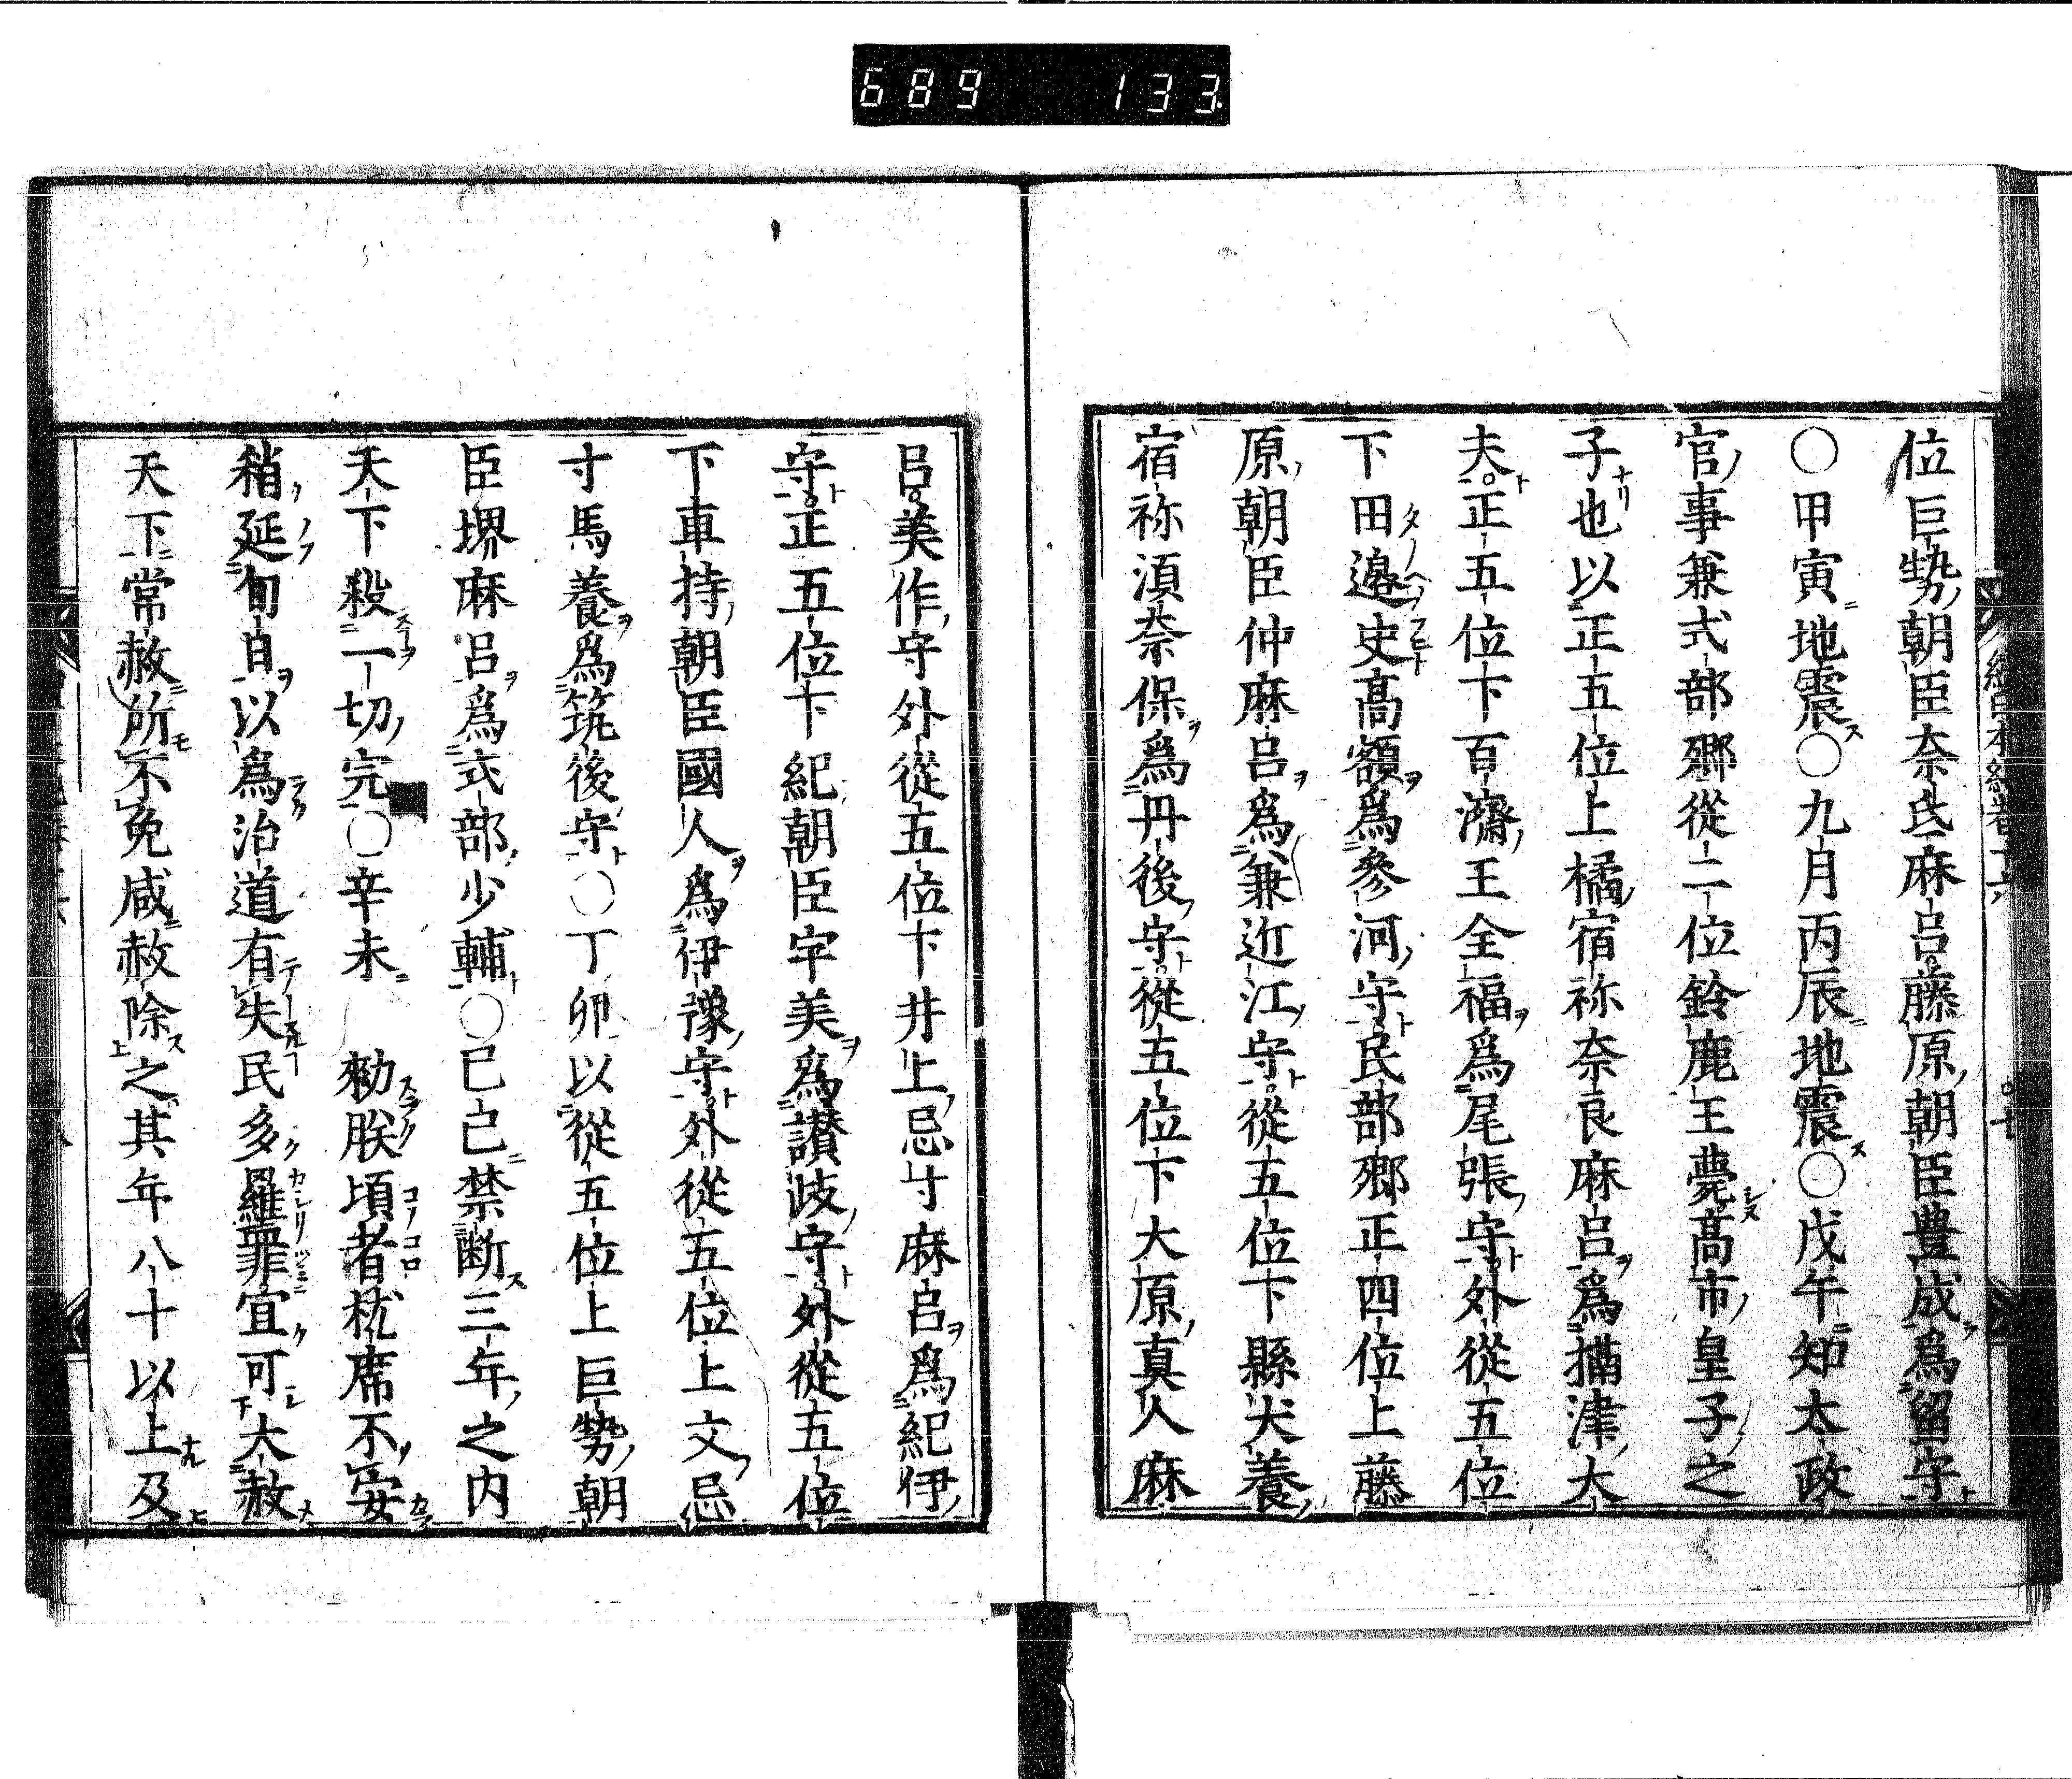 689 133
位巨勢朝臣奈氐麻呂藤原朝臣豊成爲留守
○甲寅地震○九月丙辰地震○戊午知太政
官事兼式部鄕從二位鈴鹿王薨髙市皇子之
子也以正五位上橘宿祢奈良麻呂爲攝津大
夫正五位下百濟王全福爲尾張守外從五位
下田邉史髙額爲參河守民部鄕正四位上藤
原朝臣仲麻呂爲兼近江守從五位下縣犬養
宿祢湏奈保爲丹後守從五位下大原真人麻
呂美作守外從五位下井上忌寸麻呂爲紀伊
守正五位下紀朝臣宇美爲讃岐守外從五位
下車持朝臣國人爲伊豫守外從五位上文忌
寸馬養爲筑後守○丁卯以從五位上巨勢朝
臣堺麻呂爲式部少輔○己巳禁断三年之内
天下殺一切完○辛未 勅朕頃者枕席不安
稍延旬日以爲治道有失民多羅罪宜可大赦
天下常赦所不免咸赦除之其年八十以上及